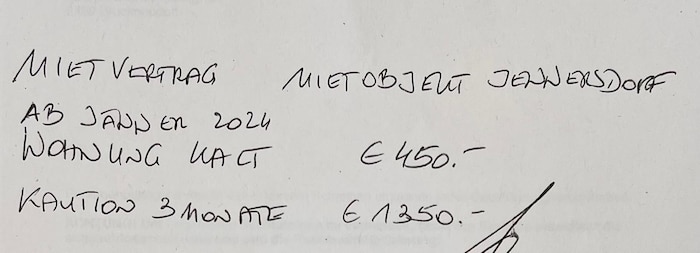 MIETVERTRAG MIETOBJEKT JENNERSDORF
AB JÄNNER 2024
WOHNUNG KALT € 450.-
KAUTION 3 MONATE € 1350.-